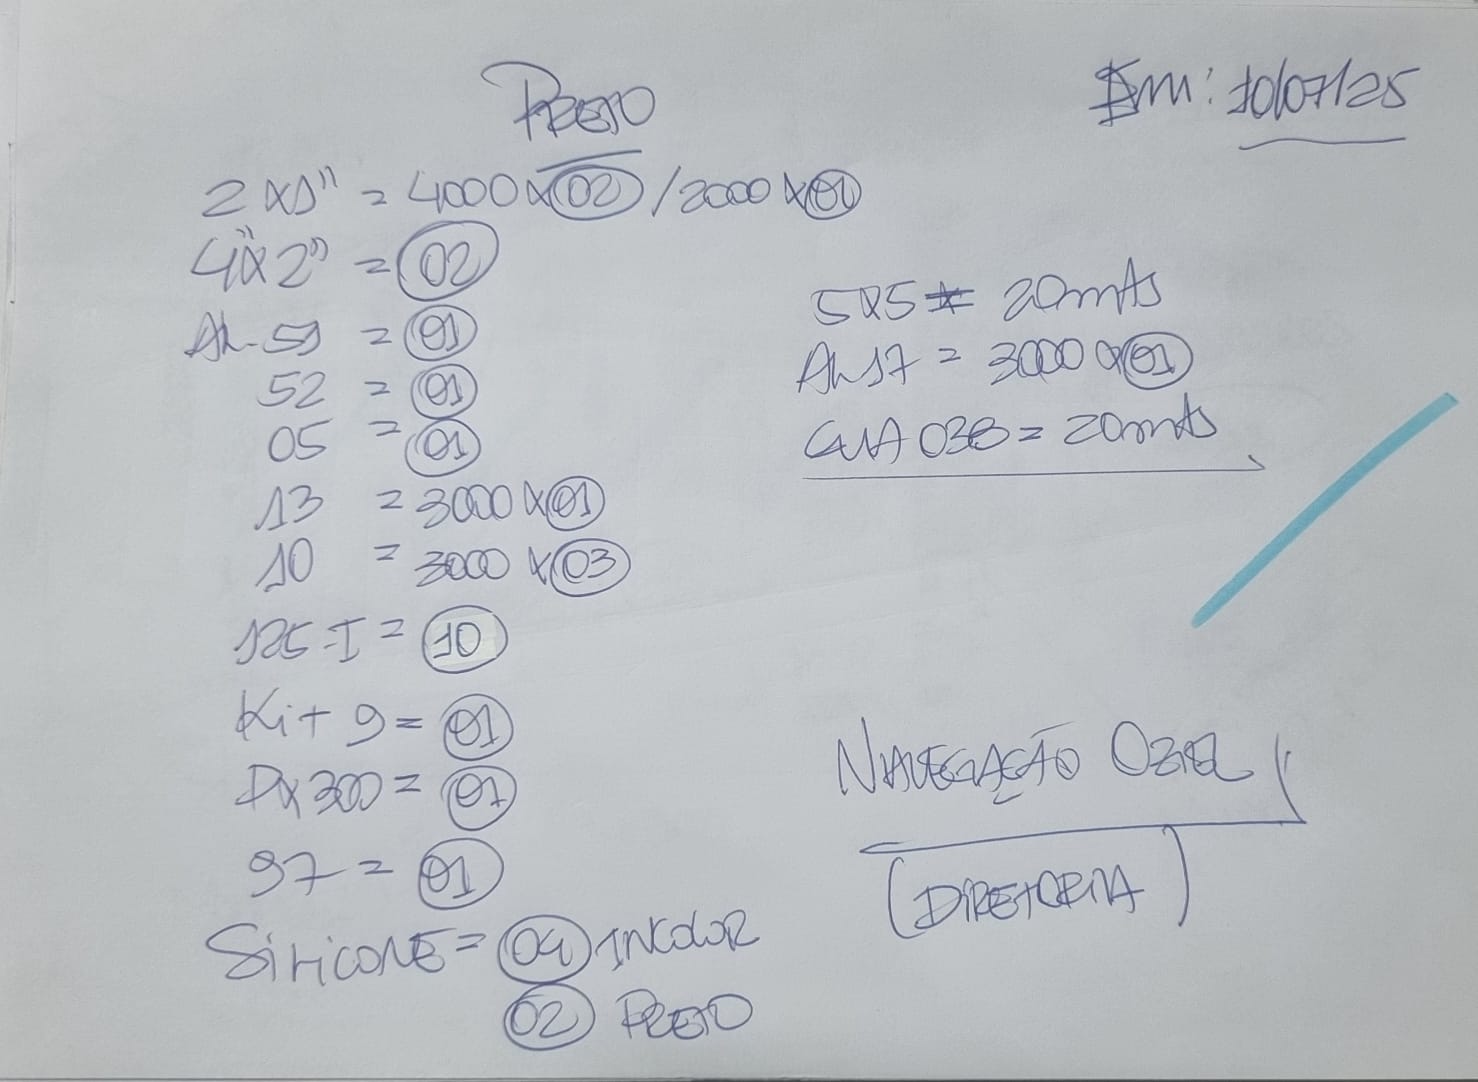 PRETO
Em: 10/07/25
2x1" = 4000x02 / 2000x01
4"x2" = 02
AL-51 = 01
52 = 01
05 = 01
13 = 3000x01
10 = 3000x03
125-I = 10
Kit 9 = 01
PX300 = 01
97 = 01
SiLiCONE = 04 INCOLOR
02 PRETO
5x5 = 20mts
AL17 = 3000x01
GUA 038 = 20mts
NAVEGAÇÃO OZIEL
(DIRETORIA)